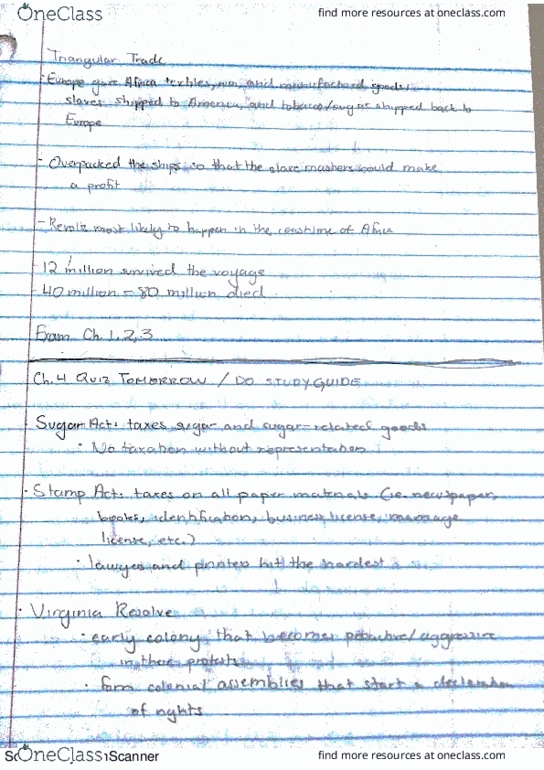 OneClass find more resources at oneclass.com
Triangular Trade
- Europe gave Africa textiles, rum, and manufactured goods,
slaves shipped to America, and tobacco/sugar shipped back to
Europe
- Overpacked the ships so that the slave mashers would make
a profit
- Revolts most likely to happen in the coastline of Africa
- 12 million survived the voyage
- 40 million - 80 million died
Exam Ch. 1, 2, 3
Ch. 4 QUIZ TOMORROW / DO STUDY GUIDE
Sugar Act: taxes sugar and sugar-related goods
• No taxation without representation
· Stamp Act: taxes on all paper materials (ie. newspaper,
books, identification, business license, marriage
license, etc.)
• lawyers and printers hit the hardest
· Virginia Resolve
• early colony that becomes /aggressive
in there protests
• form colonial assemblies that start a declaration
of rights
OneClass Scanner find more resources at oneclass.com